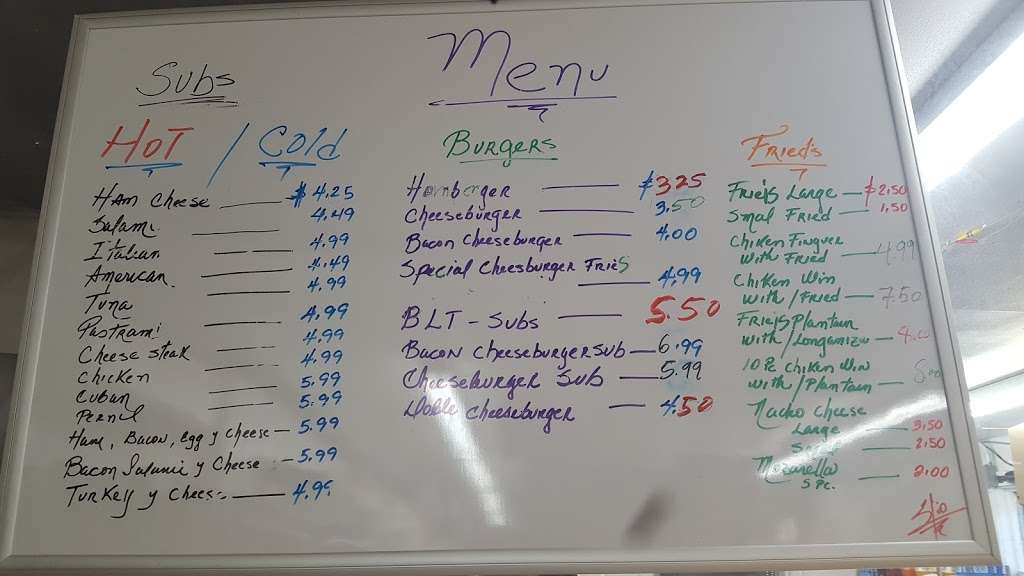 Menu
Subs
HOT / Cold
Ham cheese $4.25
Salami 4.49
Italian 4.99
American 4.49
Tuna 4.99
Pastrami 4.99
Cheese steak 4.99
Chicken 4.99
Cuban 5.99
Pernil 5.99
Ham, Bacon, Egg y Cheese 5.99
Bacon Salami y Cheese 5.99
Turkey y Chees 4.99
Burgers
Hamberger $3.25
Cheeseburger 3.50
Bacon Cheeseburger 4.00
Special Cheesburger Fries
4.99
BLT - Subs 5.50
Bacon Cheeseburger Sub 6.99
Cheeseburger Sub 5.99
Doble Cheeseburger 4.50
Frieds
Frieds Large $2.50
Smal Fried 1.50
Chiken Finguer
with Fried 4.99
Chiken Win
with/Fried 7.50
Frieds Plantain
with/Longaniza
10 Pc Chiken Win
with/Plantain
Nacho Cheese
Large 3.50
2.50
Mozarella
5 Pc. 2.00